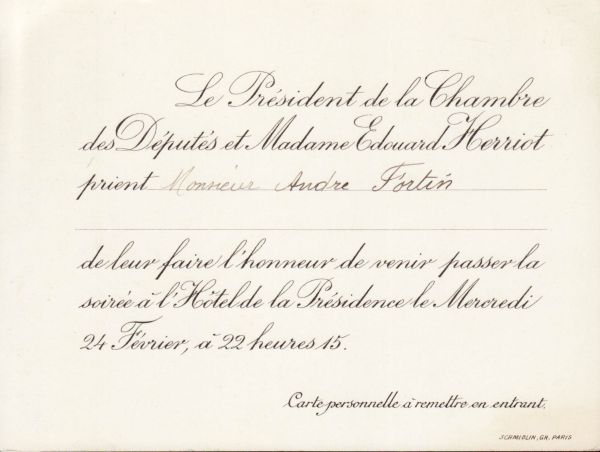 Le Président de la Chambre
des Députés et Madame Edouard Herriot
prient Monsieur Andre Fortin
de leur faire l'honneur de venir passer la
soirée à l'Hôtel de la Présidence le Mercredi
24 Février, à 22 heures 15.
Carte personnelle à remettre en entrant.
SCHMIDLIN, GR. PARIS